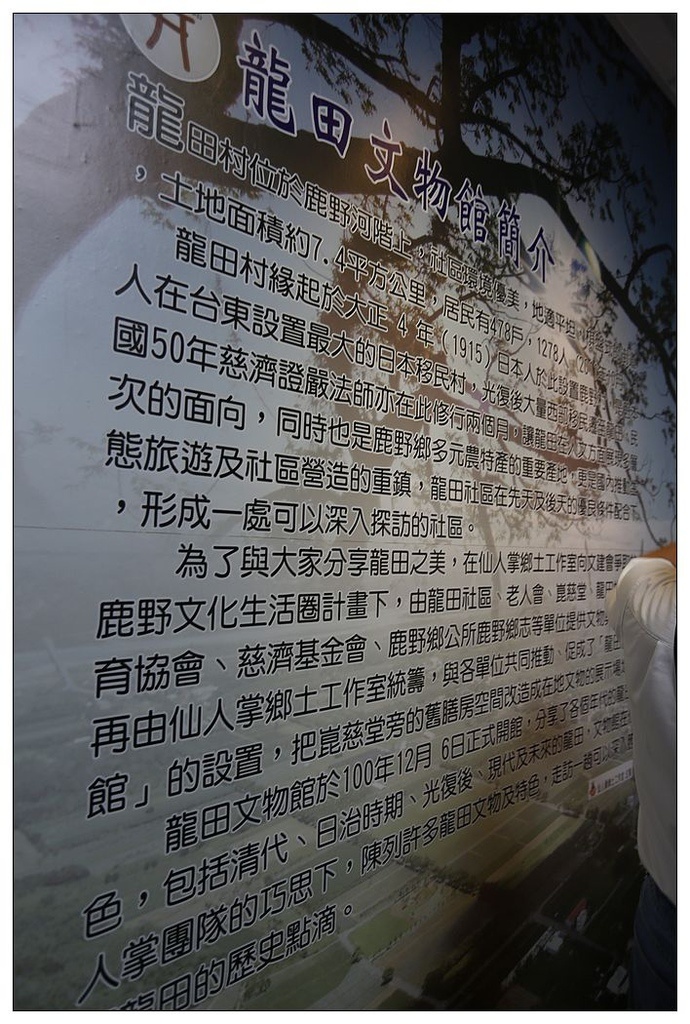 龍田文物館簡介
龍田村位於鹿野河階上，社區環境優美，地勢平坦
，土地面積約7.4平方公里，居民有478戶，1278人
龍田村緣起於大正 4 年（1915）日本人於此設置鹿野
人在台東設置最大的日本移民村，光復後大量西部移民
國50年慈濟證嚴法師亦在此修行兩個月，讓龍田在人文方面展現多層
次的面向，同時也是鹿野鄉多元農特產的重要產地，更是國內推動
態旅遊及社區營造的重鎮，龍田社區在先天及後天的優良條件配合下
，形成一處可以深入探訪的社區。
為了與大家分享龍田之美，在仙人掌鄉土工作室向文建會爭取
鹿野文化生活圈計畫下，由龍田社區、老人會、崑慈堂、龍田
育協會、慈濟基金會、鹿野鄉公所鹿野鄉志等單位提供文物
再由仙人掌鄉土工作室統籌，與各單位共同推動、促成了「龍田
館」的設置，把崑慈堂旁的舊膳房空間改造成在地文物的展示場
龍田文物館於100年12月 6日正式開館，分享了各個年代的龍
色，包括清代、日治時期、光復後、現代及未來的龍田，文物館在
人掌團隊的巧思下，陳列許多龍田文物及特色，走訪一趟可以深入
龍田的歷史點滴。